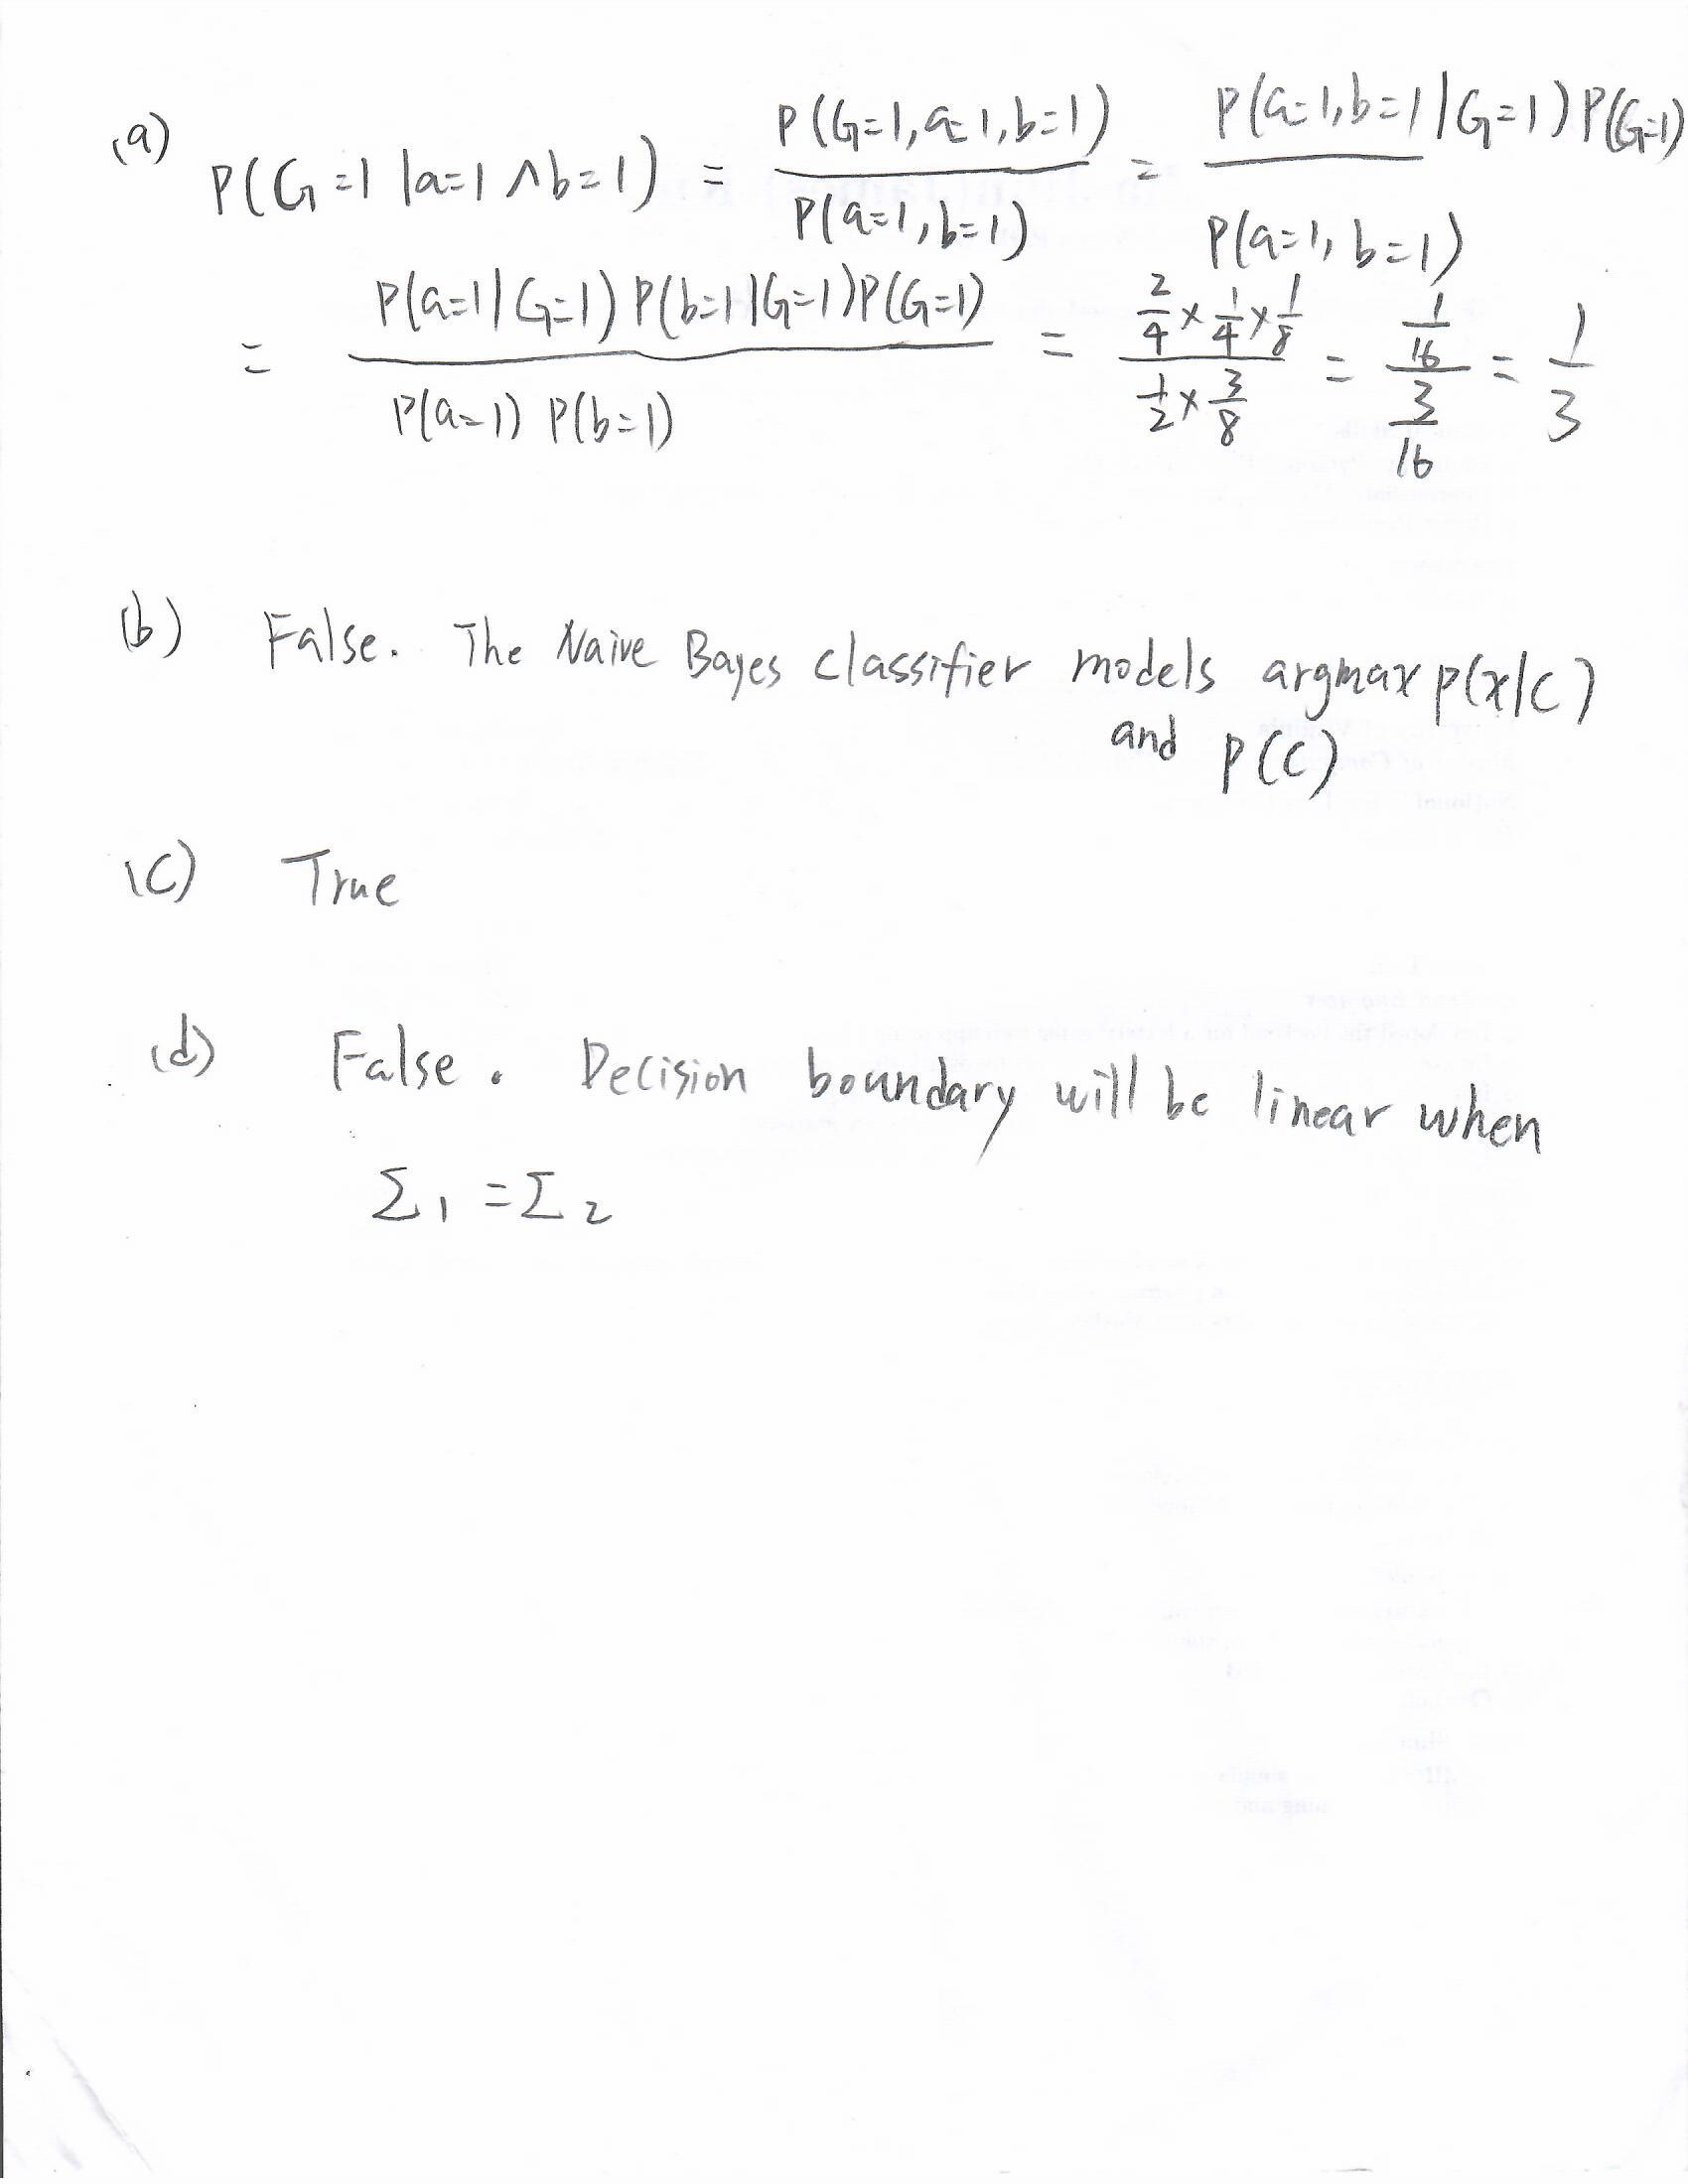 (a) P(G=1 | a=1 ∧ b=1) = P(G=1, a=1, b=1) / P(a=1, b=1) = P(a=1, b=1 | G=1) P(G=1) / P(a=1, b=1)
= P(a=1 | G=1) P(b=1 | G=1) P(G=1) / P(a=1) P(b=1) = 2/4 × 1/4 × 1/8 / 1/2 × 3/8 = 1/16 / 3/16 = 1/3
(b) False. The Naive Bayes classifier models argmax p(x|c)
and p(c)
(c) True
(d) False. Decision boundary will be linear when
Σ1 = Σ2